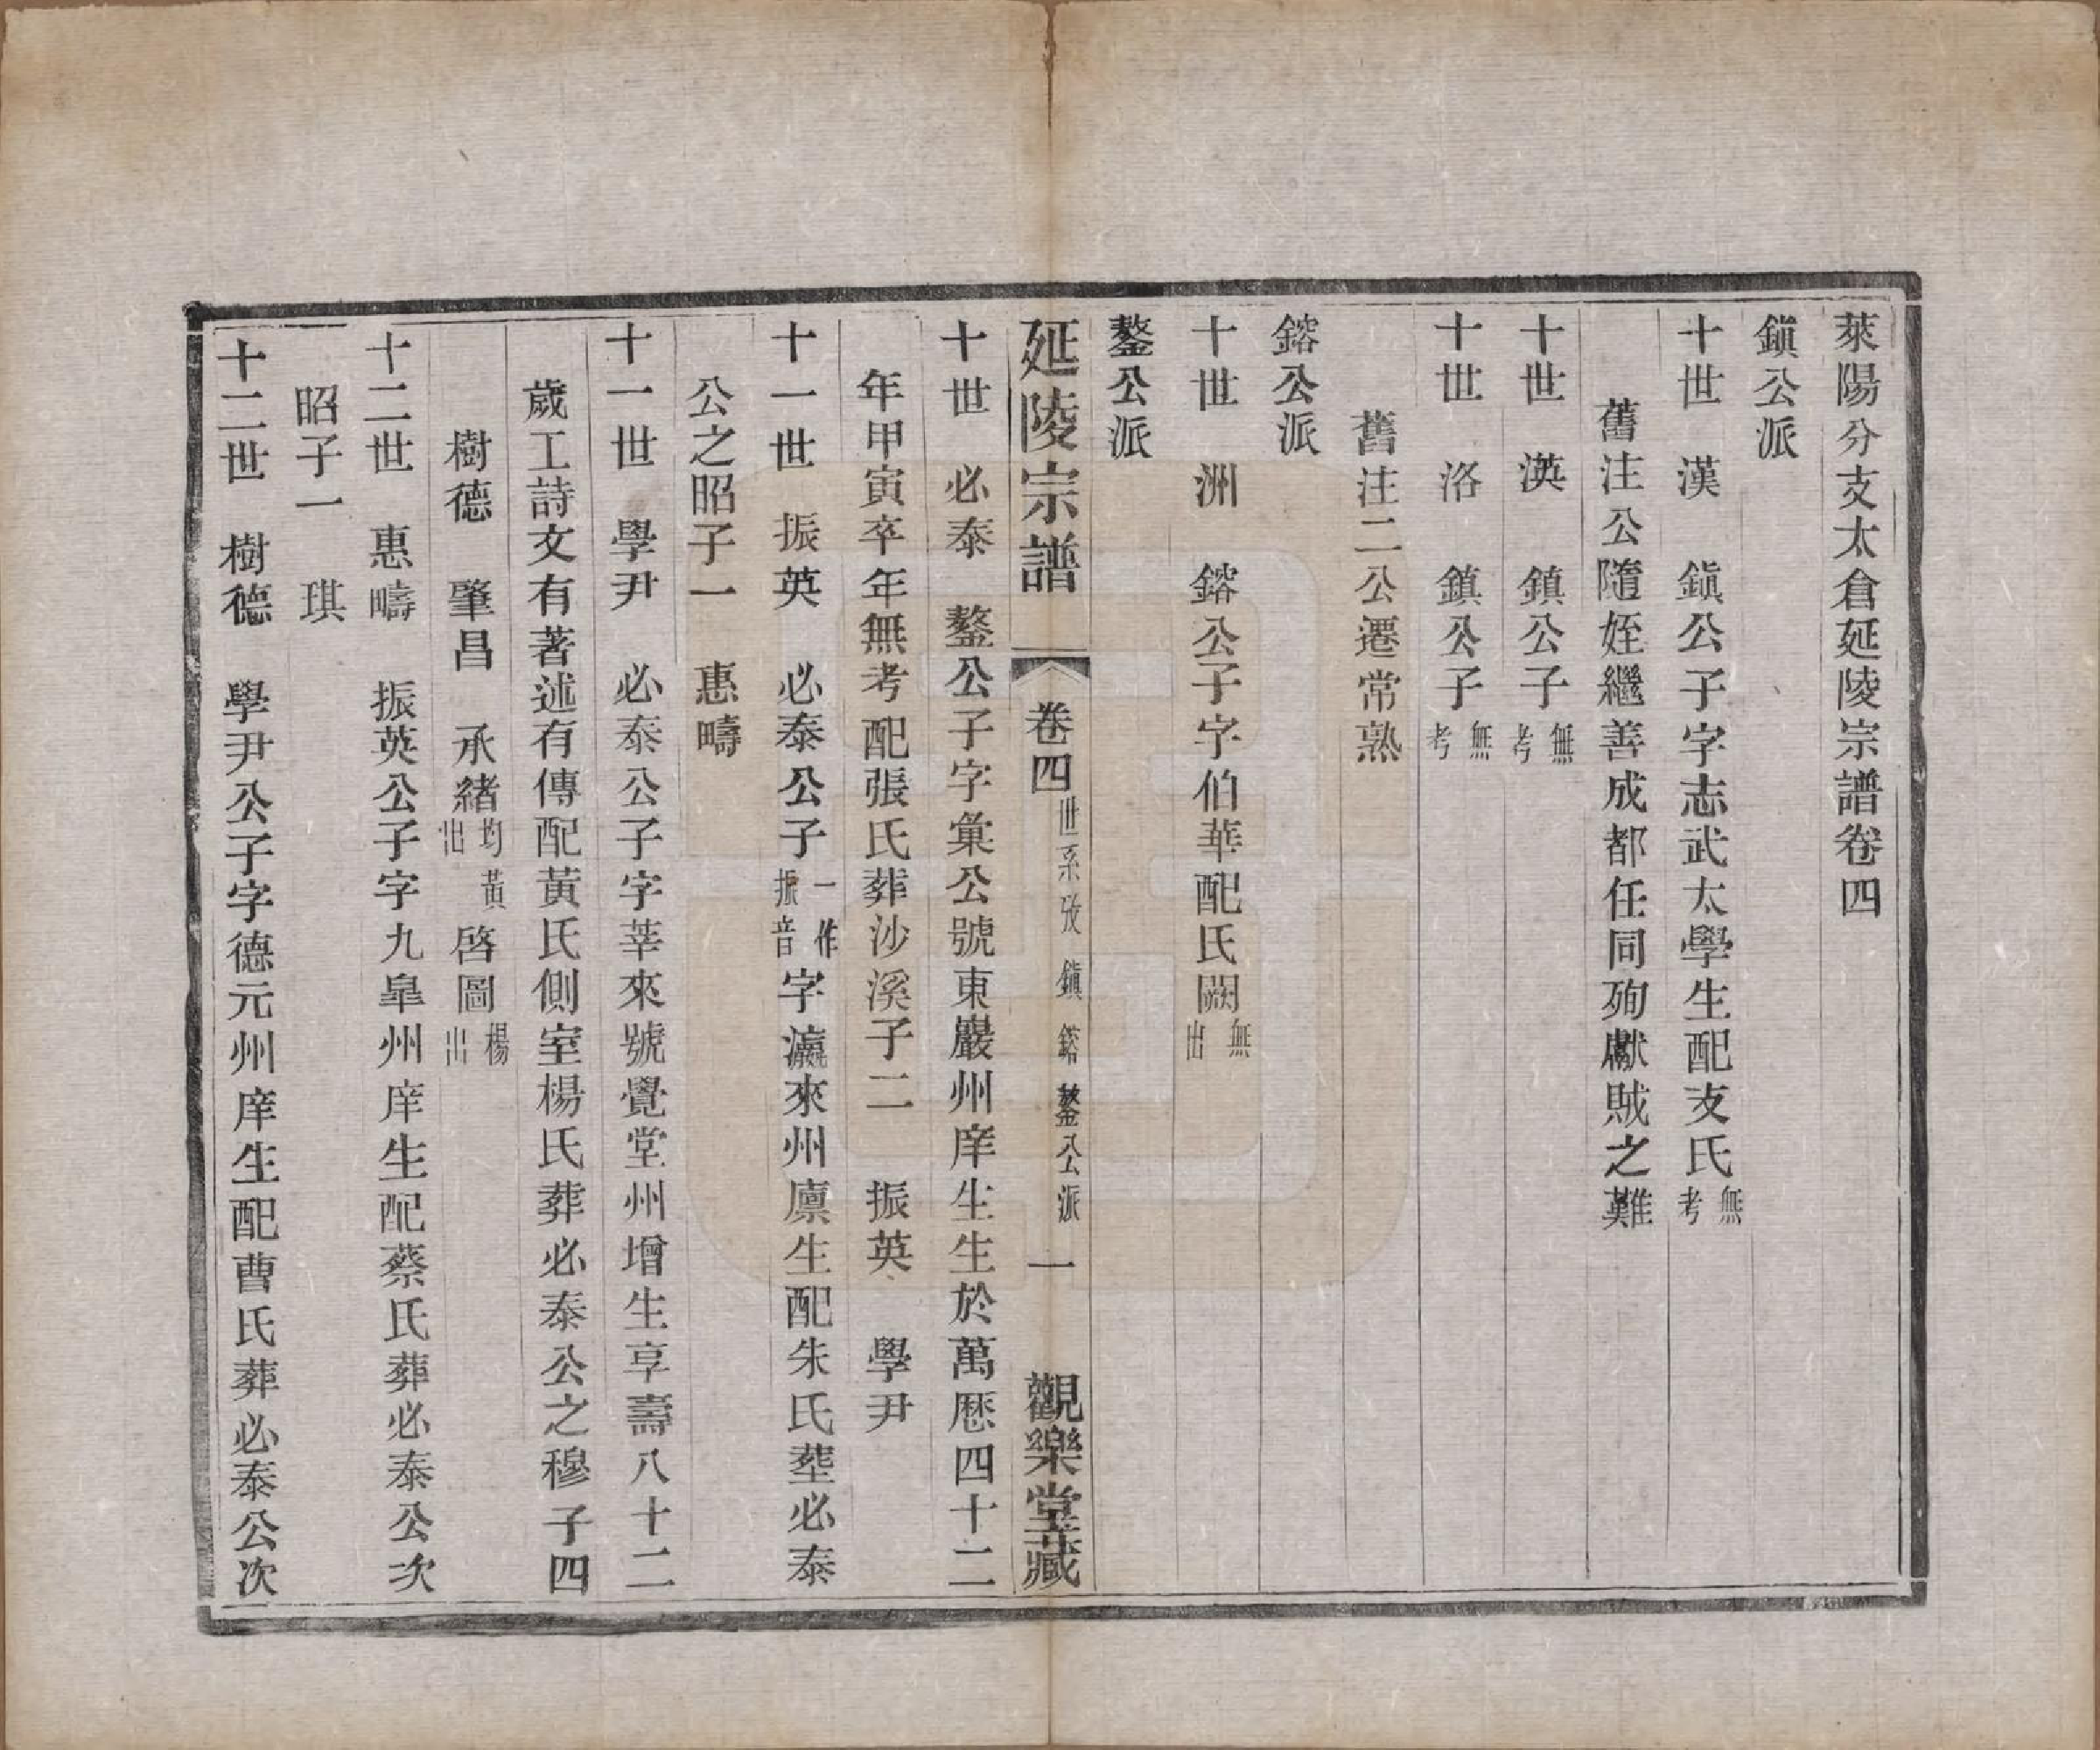 萊陽分支太倉延陵宗譜卷四
鎭公派
十世 漢 鎭公子字志武太學生配支氏無考
舊注公隨姪繼善成都任同殉獻賊之難
十世 渶 鎮公子無考
十世 洛 鎮公子無考
舊注二公遷常熟
鎔公派
十世 洲 鎔公子字伯華配氏闕無出
鏊公派
延陵宗譜 卷四 世系攷 鎮 鎔 鏊公派 一 觀樂堂藏
十世 必泰 鏊公子字彙公號東巖州庠生生於萬歷四十二
年甲寅卒年無考配張氏葬沙溪子二 振英 學尹
十一世 振英 必泰公子一作振音字瀛來州廩生配朱氏塟必泰
公之昭子一 惠疇
十一世 學尹 必泰公子字莘來號覺堂州增生享壽八十二
歲工詩文有著述有傳配黃氏側室楊氏葬必泰公之穆子四
樹德 肇昌 承緒均黃出 啓圖楊出
十二世 惠疇 振英公子字九臯州庠生配蔡氏葬必泰公次
昭子一 琪
十二世 樹德 學尹公子字德元州庠生配曹氏葬必泰公次